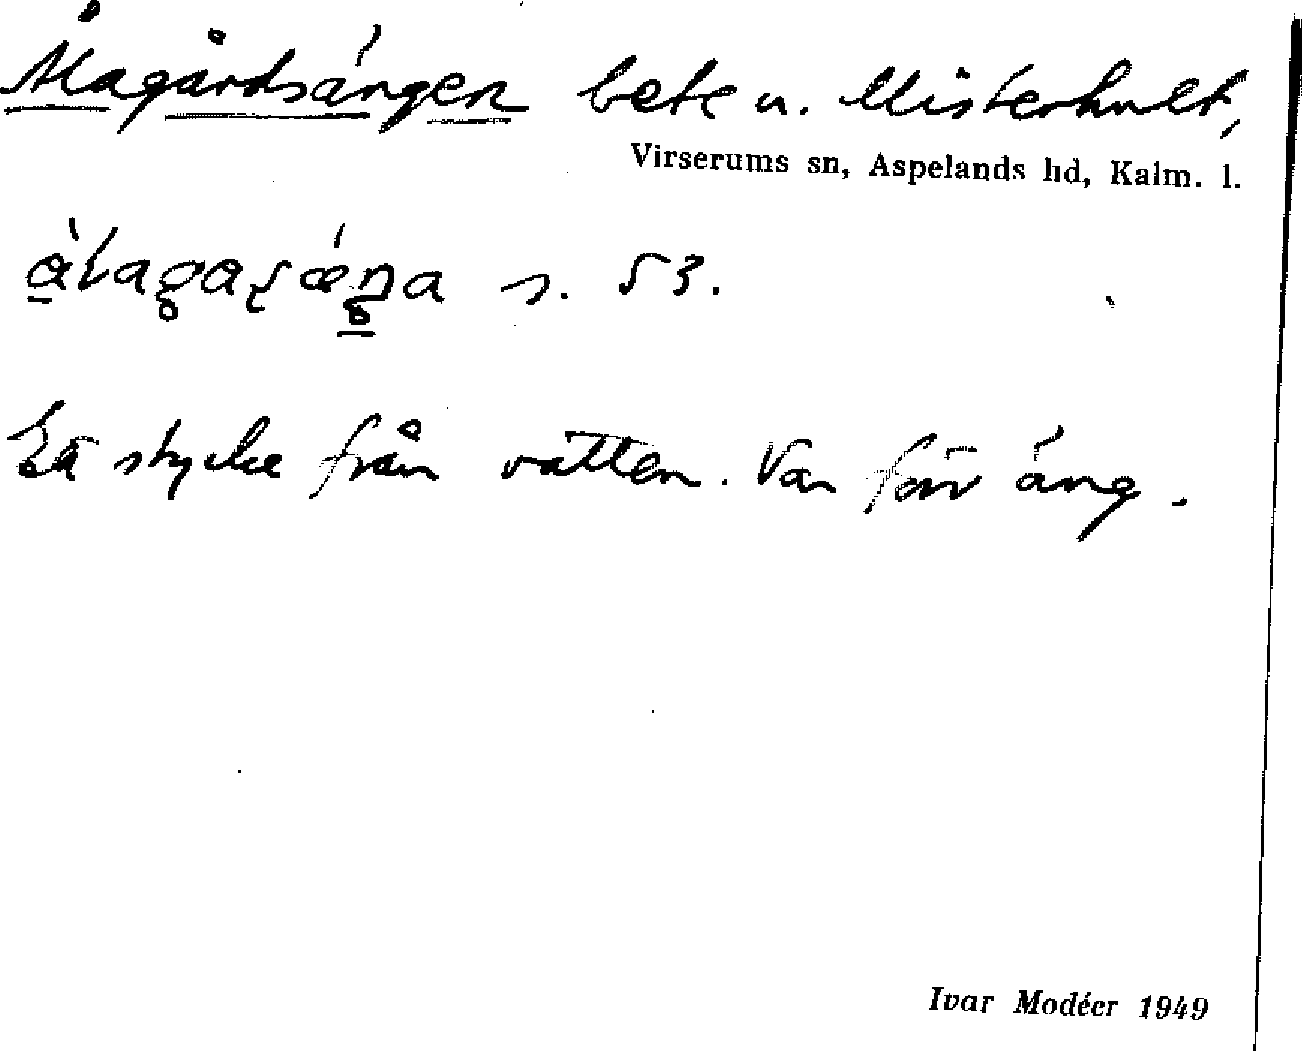 Ålagårdsängen bete u. Misterhult,
Virserums sn, Aspelands hd, Kalm. l.
s. 53.
Ett stycke från vatten. Var förr äng.
Ivar Modéer 1949